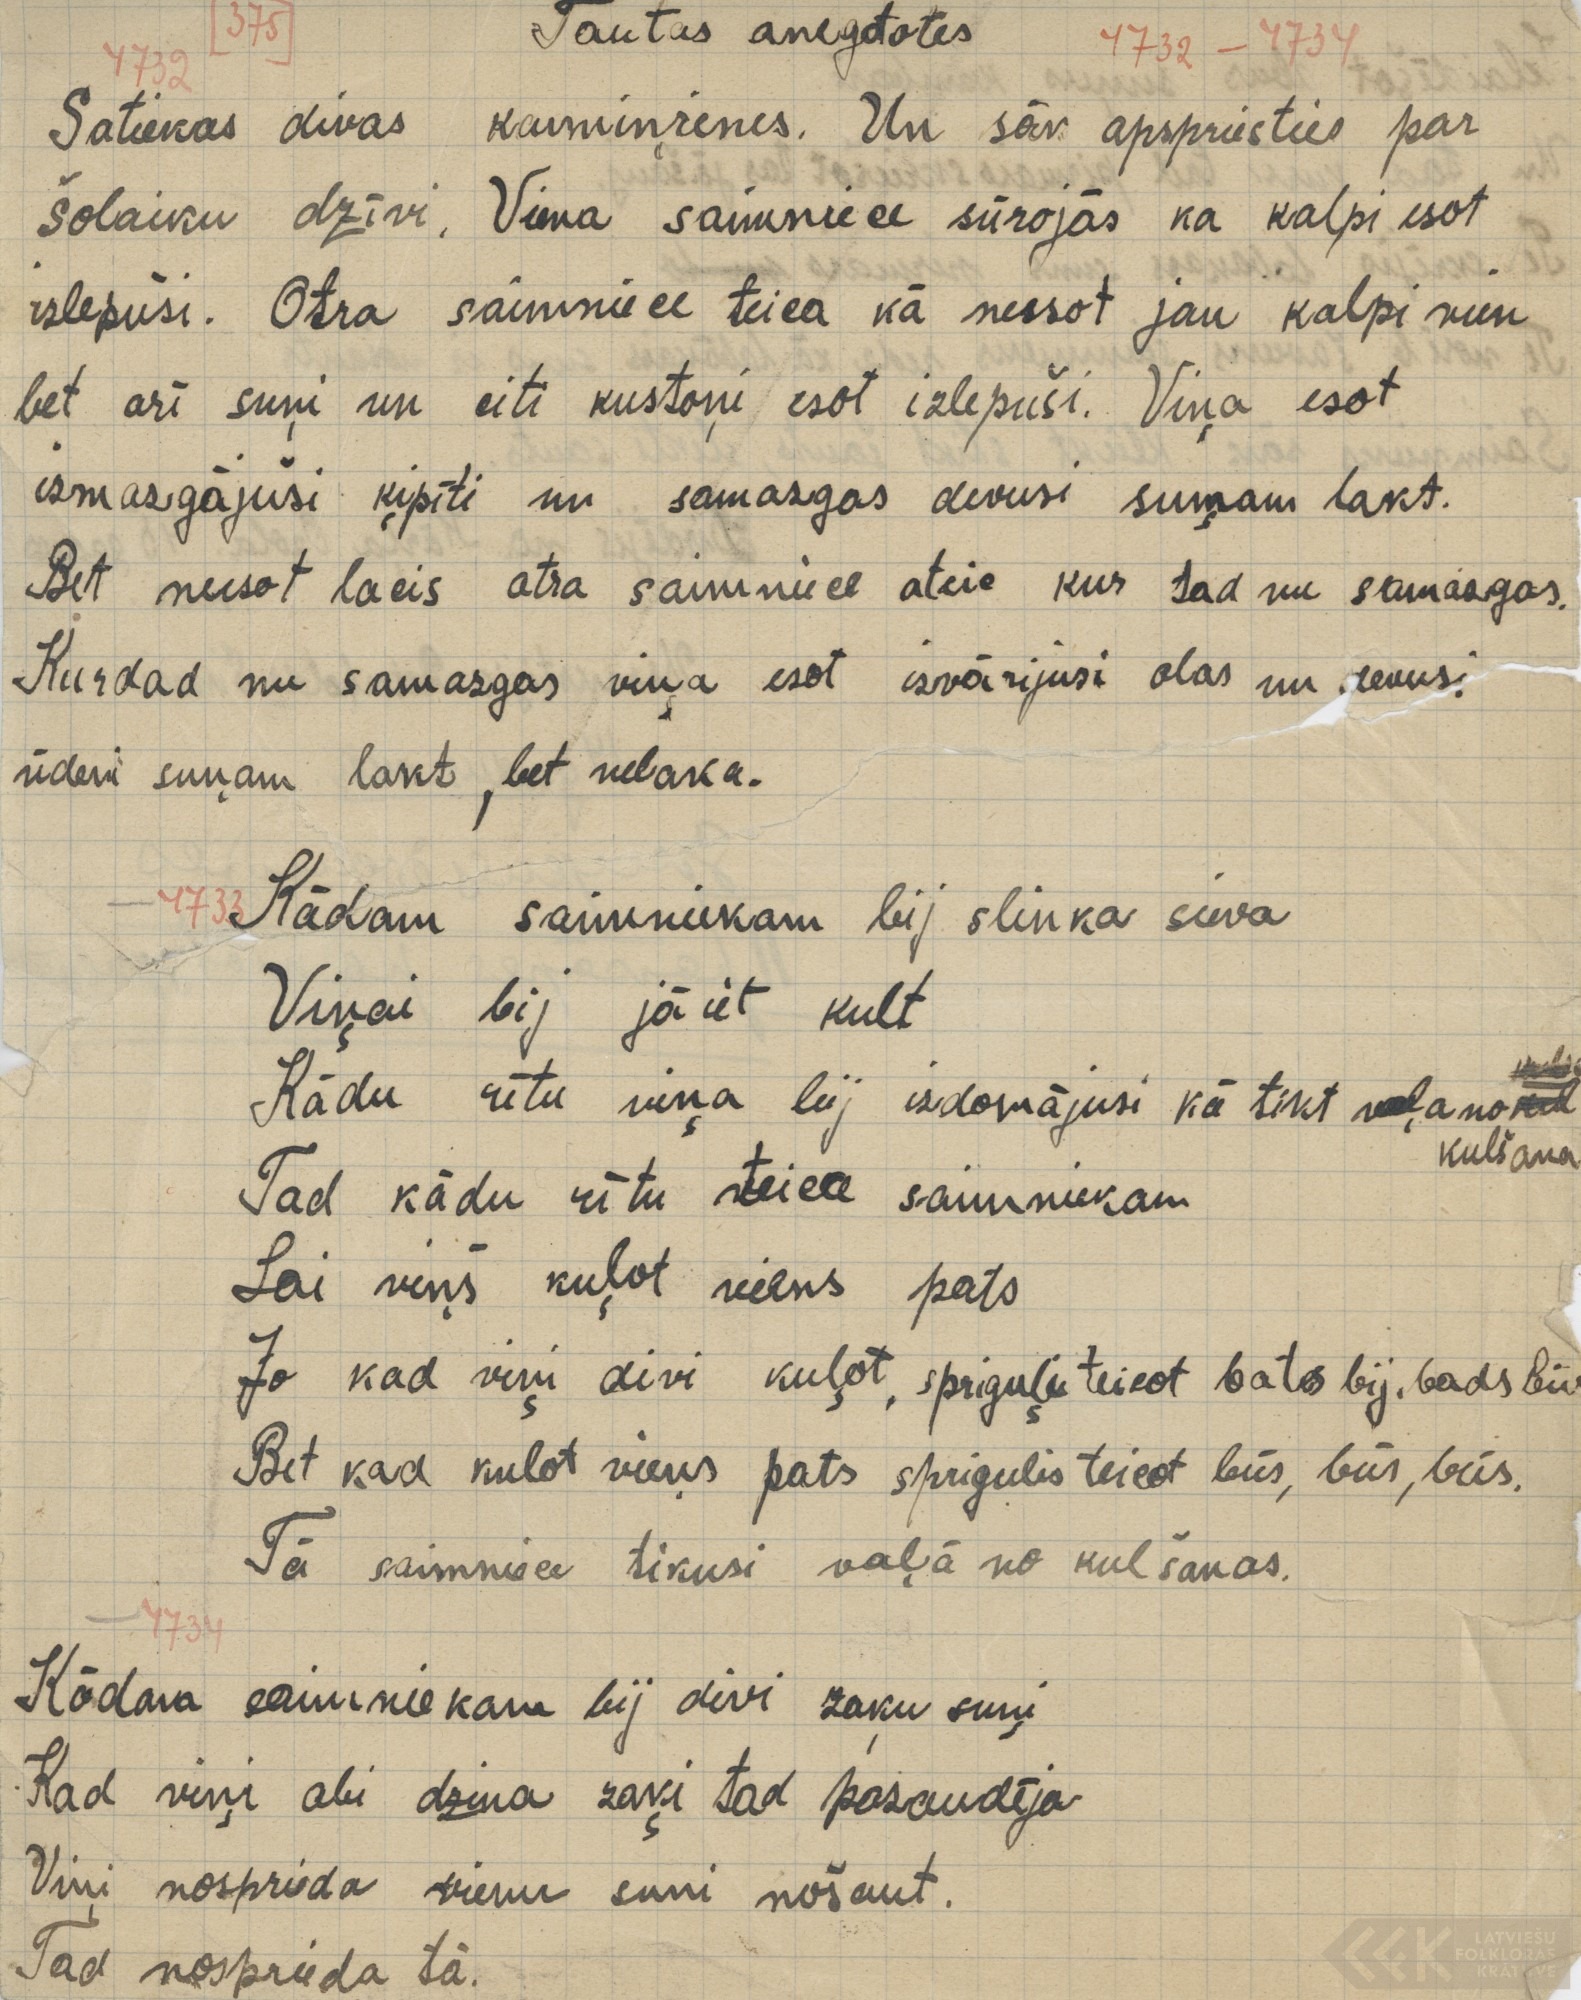 [375] Tautas anegdotes
4732 4732 – 4734
Satiekas divas kaiminienes. Un sāk apspriesties par
šolaiku dzīvi. Viena saimniece sūrojās ka kalpi esot
izlepuši. Otra saimniece teica kā neesot jau kalpi vien
bet arī suņi un citi kustoņi esot izlepuši. Viņa esot
izmazgājuši ķipīti un samazgas devusi suņam lakt.
Bet neesot lacis otra saimniece ateic kur tad nu samazgas.
Kurdad nu samazgas viņa esot izvārijusi olas un devusi
ūdeni suņam lakt, bet nelaka.
4733 Kādam saimniekam bij slinka sieva
Viņai bij jāiet kult
Kādu rītu viņa bij izdomājusi kā tikt vaļa no
kulšana
Tad kādu rītu teica saimniekam
Lai viņš kuļot viens pats
Jo kad viņi divi kuļot, spriguļi teicot bats bij, bads būs
Bet kad kulot vieņs pats sprigulis teicot būs, būs, būs.
Tā saimniece tikusi vaļā no kulšanas.
4734
Kādam saimniekam bij divi zaķu suņi
Kad viņi abi dzina zaķi tad pazaudēja
Viņi nosprieda vienu suni nošaut.
Tad nosprieda tā.
LATVIEŠU
FOLKLORAS
KRĀTUVE